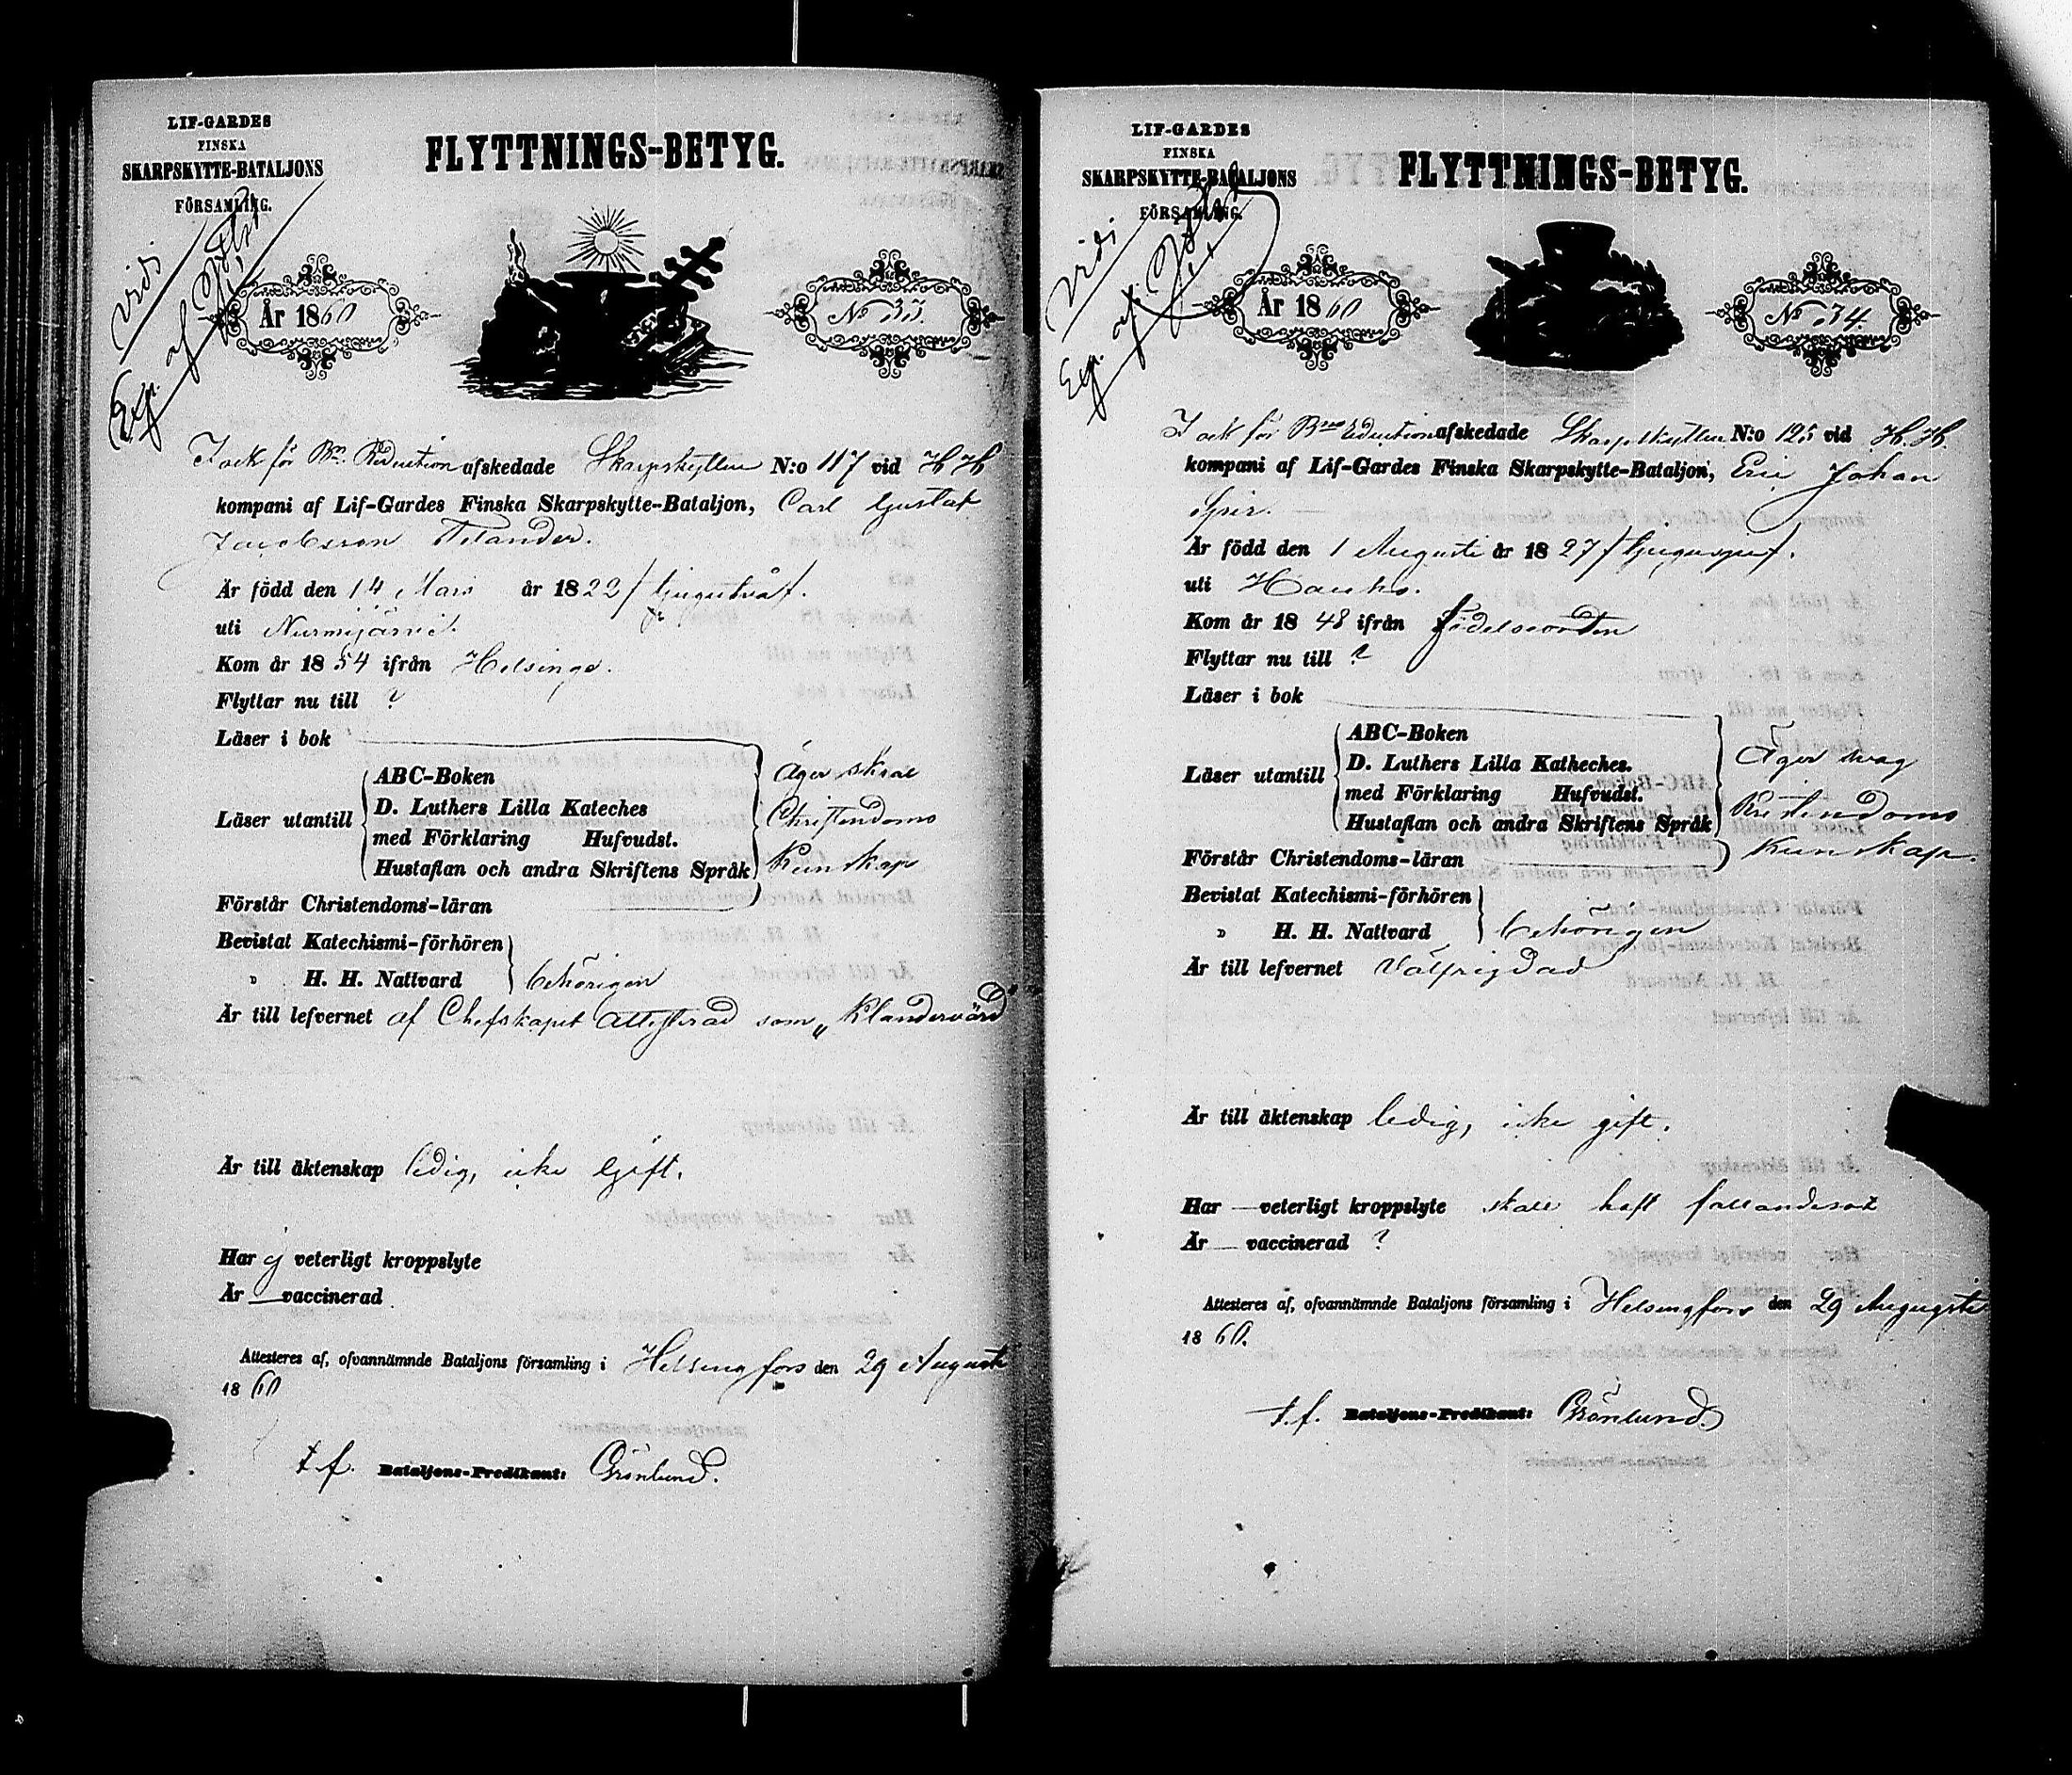 LIF-GARDES
FINSKA
SKARPSKYTTE-BATALJONS
FÖRSAMLING.
FLYTTNINGS-BETYG.
vidi
Exp. af
År 1860
No 33.
I ock för Bns Reduction afskedade Skarpskytten N:o 117 vid H H
kompani af Lif-Gardes Finska Skarpskytte-Bataljon, Carl Gustaf
Jacobsson Telander.
Är född den 14 Mars år 1822 / tjugutvå /.
uti Nurmijärvi.
Kom år 1854 ifrån Helsinge.
Flyttar nu till ?
Läser i bok
Läser utantill
ABC-Boken
D. Luthers Lilla Kateches
med Förklaring Hufvudst.
Hustaflan och andra Skriftens Språk
Äger skral
Christendoms
Kunskap
Förstår Christendoms-läran
Bevistat Katechismi-förhören
" H. H. Nattvard
behörigen
Är till lefvernet af Chefskapet attesterad som „Klandervärd"
Är till äktenskap ledig, icke Gift.
Har ej veterligt kroppslyte
Är — vaccinerad
Attesteres af, ofvannämnde Bataljons församling i Helsingfors den 29 Augusti
1860
t.f. Bataljons-Predikant: Grönlund.
LIF-GARDES
FINSKA
SKARPSKYTTE-BATALJONS
FÖRSAMLING.
FLYTTNINGS-BETYG.
vidi
Exp. af
År 1860
No 34.
I ock för Bns Reduction afskedade Skarpskytten N:o 125 vid H. H.
kompani af Lif-Gardes Finska Skarpskytte-Bataljon, Eric Johan
Spir.
Är född den 1 Augusti år 1827 / tjugusju /.
uti Hauho.
Kom år 1848 ifrån födelseorten
Flyttar nu till ?
Läser i bok
Läser utantill
ABC-Boken
D. Luthers Lilla Katheches.
med Förklaring Hufvudst.
Hustaflan och andra Skriftens Språk
Äger svag
Kristendoms
Kunskap.
Förstår Christendoms-läran
Bevistat Katechismi-förhören
" H. H. Nattvard
behörigen
Är till lefvernet Välfrigdad
Är till äktenskap ledig, icke gift.
Har — veterligt kroppslyte skall haft fallandesot
Är — vaccinerad ?
Attesteres af, ofvannämnde Bataljons församling i Helsingfors den 29 Augusti
1860.
t.f. Bataljons-Predikant: Grönlund